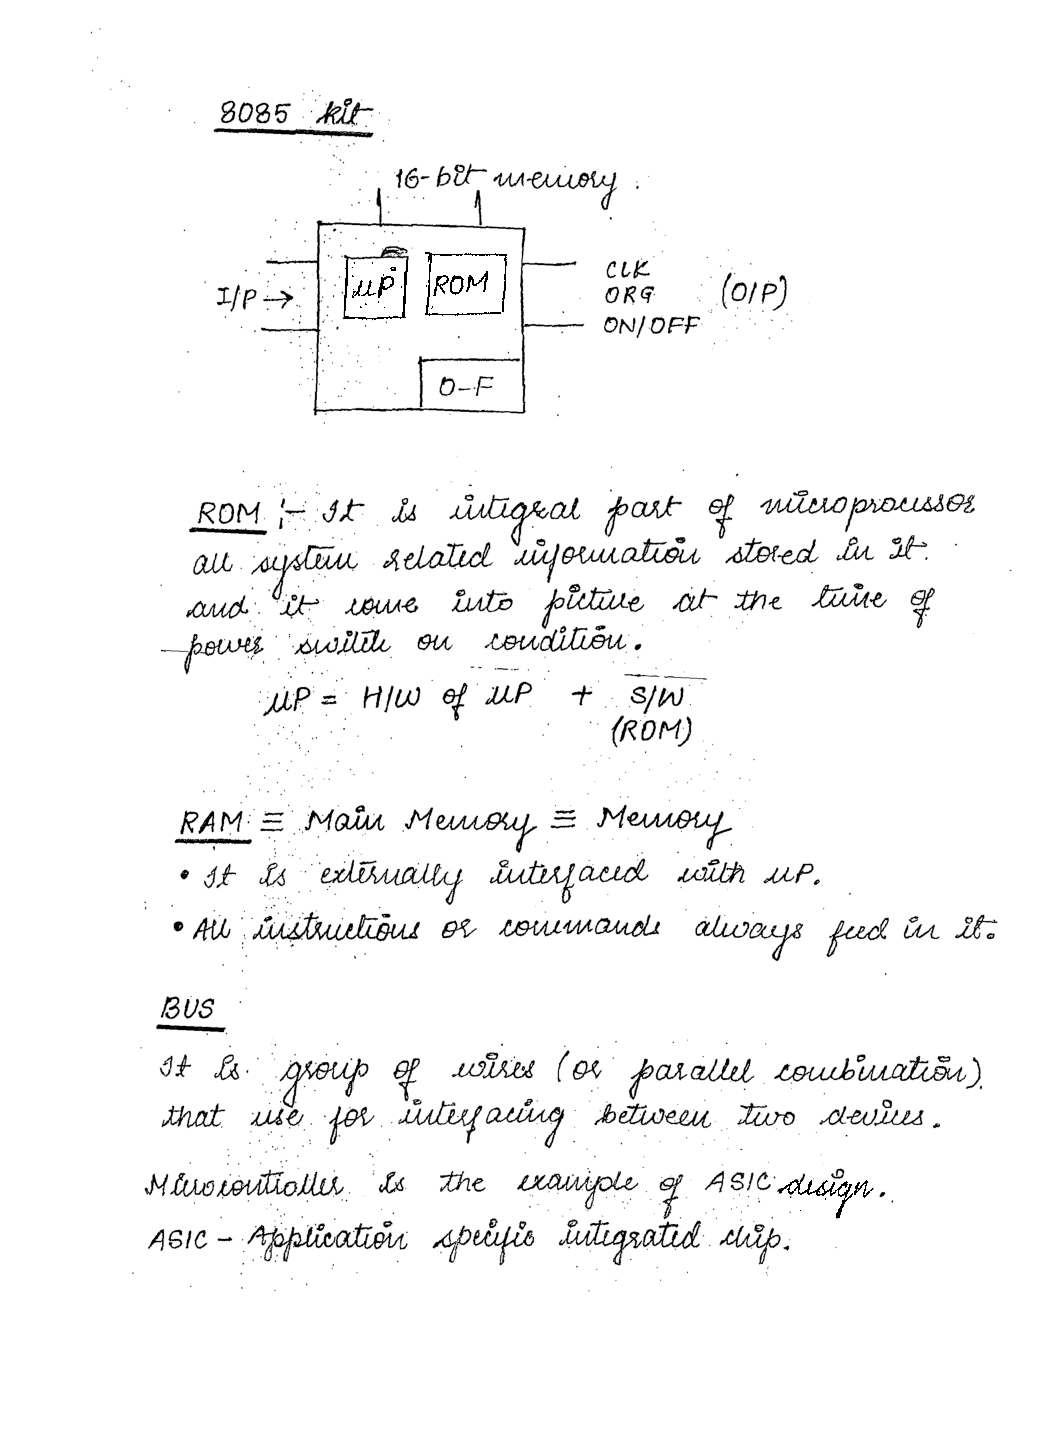 8085 kit
16-bit memory.
I/P →
μP
ROM
CLK
ORG
ON/OFF
(O/P)
O-F
ROM :- It is integral part of microprocessor
all system related information stored in it.
and it come into picture at the time of
power switch on condition.
μP = H/W of μP + S/W
(ROM)
RAM ≡ Main Memory ≡ Memory
• It is externally interfaced with μP.
• All instructions or commands always feed in it.
BUS
It is group of wires (or parallel combination)
that use for interfacing between two devices.
Microcontroller is the example of ASIC design.
ASIC - Application specific integrated chip.